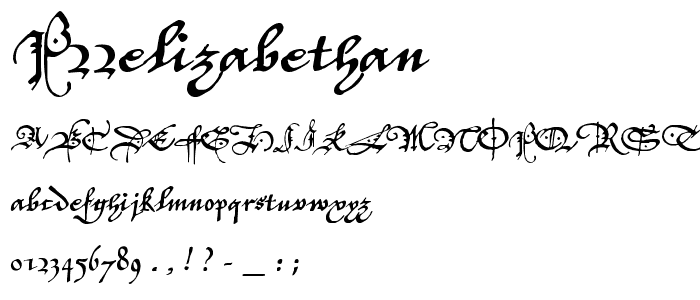 P22elizabethan
ABCDEFGHIJKLMNOPQRST
abcdefghijklmnopqrstuvwxyz
0123456789 . , ! ? - _ : ;